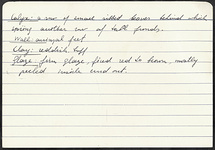 Calyx: a row of small sided leaves behind which
spring another row of tall fronds.
Wall: unusual feet
Clay: reddish buff
Glaze: firm glaze, fired red to brown, mostly
peeled inside and out.